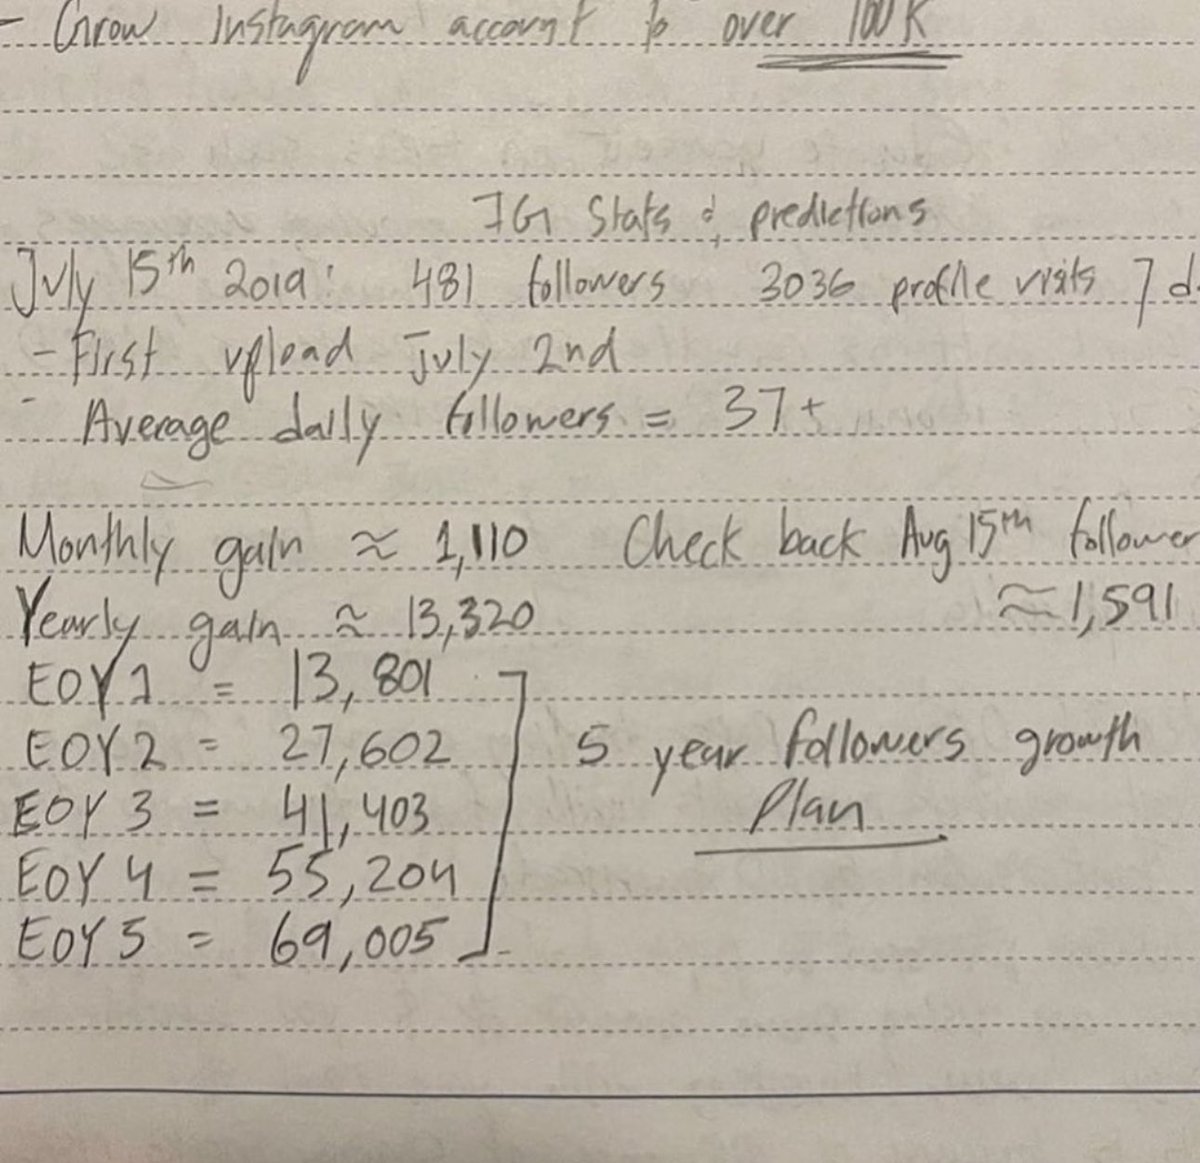 - Grow Instagram account to over 100K
IG Stats & predictions
July 15th 2019: 481 followers 3036 profile visits 7 d
- First upload July 2nd
- Average daily followers = 37+
Monthly gain ≈ 1,110 Check back Aug 15th follower
≈ 1,591
Yearly gain ≈ 13,320
EOY 1 = 13,801
EOY 2 = 27,602
5 year followers growth
Plan
EOY 3 = 41,403
EOY 4 = 55,204
EOY 5 = 69,005